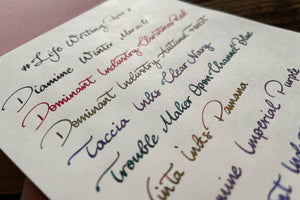 #Life Writing Paper
Diamine Winter Miracle
Dominant Industry Christmas Red
Dominant Industry Autumn
Taccia Inks Clear Navy
Trouble Maker Open Channel Blue
Vinta Inks Panana
Imperial Purple